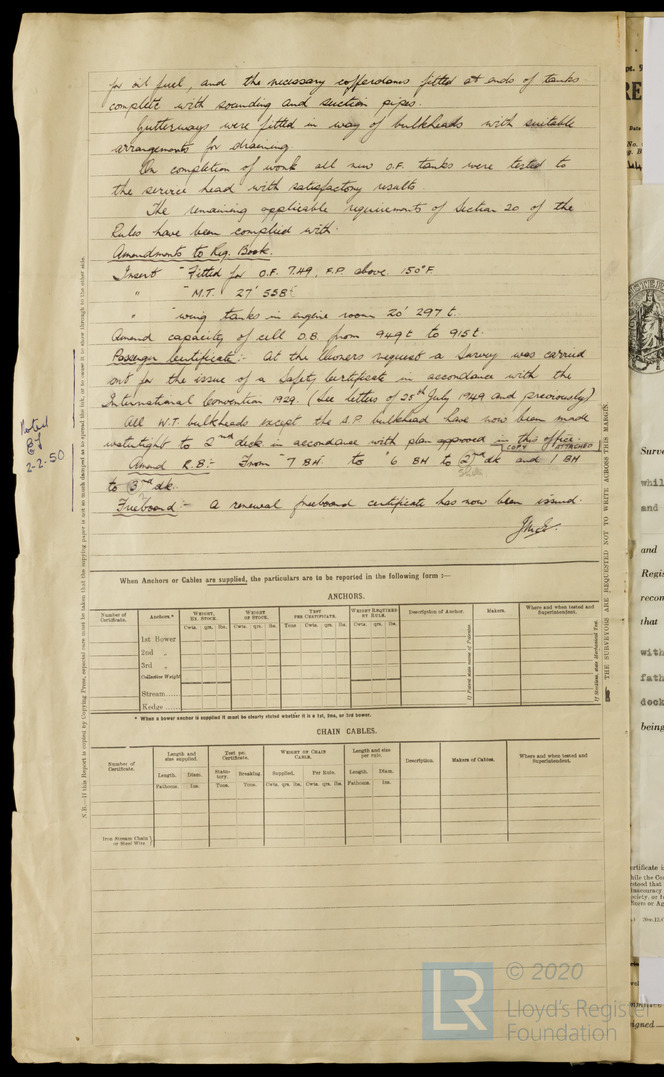 for oil fuel, and the necessary cofferdams fitted at ends of tanks
complete with sounding and suction pipes.
Gutterways were fitted in way of bulkheads with suitable
arrangements for draining
On completion of work all new O.F. tanks were tested to
the service head with satisfactory results.
The remaining applicable requirements of Section 20 of the
Rules have been complied with.
Amendments to Reg. Book.
Insert "Fitted for O.F. 7.49, F.P. above 150°F.
" "M.T. 27' 558t
" "wing tanks in engine room 20' 297t.
Amend capacity of cell D.B. from 949t to 915t.
Passenger Certificate:- At the Owners request a Survey was carried
out for the issue of a Safety Certificate in accordance with the
International Convention 1929. (See letters of 25th July 1949 and previously)
All W.T. bulkheads except the A.P. bulkhead have now been made
watertight to 2nd deck in accordance with plan approved in this office.
(COPY ATTACHED)
Amend R.B:- From "7 BH to "6 BH to 2nd dk and 1 BH
to 3rd dk.
Freeboard:- A renewal freeboard certificate has now been issued.
Noted
2-2-50
When Anchors or Cables are supplied, the particulars are to be reported in the following form :—
ANCHORS.
Number of Certificate.
Anchors.*
WEIGHT, EX. STOCK.
WEIGHT OF STOCK.
TEST PER CERTIFICATE.
WEIGHT REQUIRED BY RULE.
Description of Anchor.
Makers.
Where and when tested and Superintendent.
Cwts. qrs. lbs. Cwts. qrs. lbs. Tons. Cwts. qrs. lbs. Cwts. qrs. lbs.
1st Bower
2nd "
3rd "
Collective Weight
Stream
Kedge
* When a bower anchor is supplied it must be clearly stated whether it is a 1st, 2nd, or 3rd bower.
CHAIN CABLES.
Number of Certificate.
Length and size supplied.
Test per Certificate.
WEIGHT OF CHAIN CABLE.
Length and size per rule.
Description.
Makers of Cables.
Where and when tested and Superintendent.
Length. Diam. Statutory. Breaking. Supplied. Per Rule. Length. Diam.
Fathoms. Ins. Tons. Tons. Cwts. qrs. lbs. Cwts. qrs. lbs. Fathoms. Ins.
Iron Stream Chain or Steel Wire
N.B.—If this Report is copied by Copying Press, especial care must be taken that the copying paper is not so much damped as to spread the ink, or to cause it to show through to the other side.
THE SURVEYORS ARE REQUESTED NOT TO WRITE ACROSS THIS MARGIN.
Surve
whil
and
and
Regis
recon
that
with
fath
dock
being
LR
© 2020
Lloyd's Register
Foundation